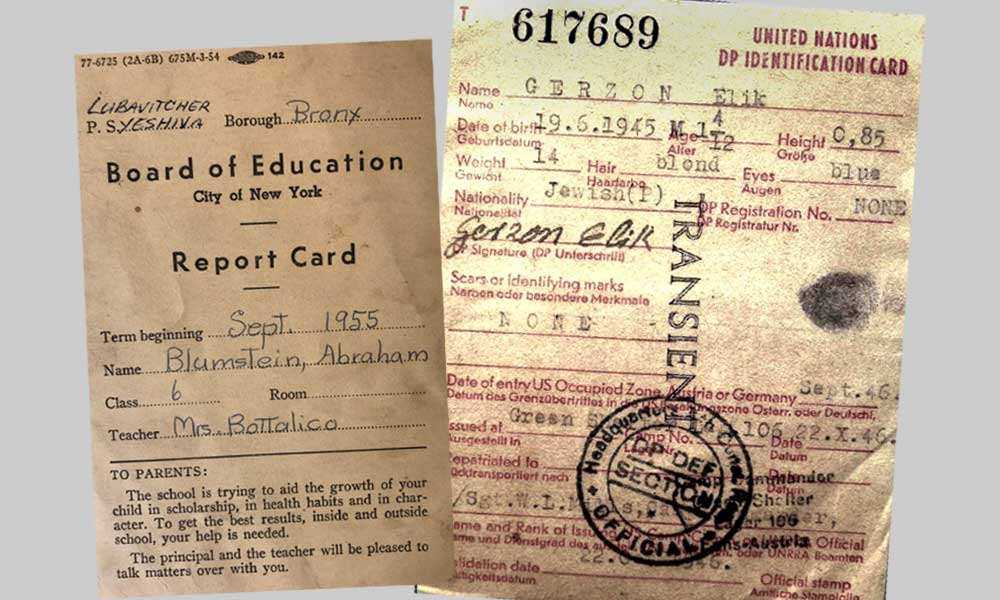 77-6725 (2A-6B) 675M-3-54 142
LUBAVITCHER
P. S. YESHIVA Borough Bronx
Board of Education
City of New York
Report Card
Term beginning Sept. 1955
Name Blumstein, Abraham
Class 6 Room
Teacher Mrs. Bottalico
TO PARENTS:
The school is trying to aid the growth of your
child in scholarship, in health habits and in char-
acter. To get the best results, inside and outside
school, your help is needed.
The principal and the teacher will be pleased to
talk matters over with you.
T
617689
UNITED NATIONS
DP IDENTIFICATION CARD
Name GERZON Elik
Name
Date of birth 19.6.1945 M Age 1 4/12 Height 0,85
Geburtsdatum Alter Größe
Weight 14 Hair blond Eyes blue
Gewicht Haarfarbe Augen
Nationality Jewish(P) DP Registration No. NONE
Nationalität DP Registratur Nr.
Gerzon Elik
DP Signature (DP Unterschrift)
TRANSIENT
Scars or identifying marks
Narben oder besondere Merkmale
NONE -
Date of entry US Occupied Zone, Austria or Germany Sept.46.
Datum des Grenzübertrittes in die Besatzungszone Österr. oder Deutschl.
Green 106 22.X.46.
Issued at Camp No. Date
Ausgestellt in Datum
Repatriated to
Rücktransportiert nach Datum
Commander
/Sgt.W.L. Shelter
106
Name and Rank of Issuing Official
Name und Dienstgrad des oder UNRRA Beamten
Ens-Austria
Validation date 22. 46.
Gültigkeitsdatum
Official stamp
Amtliche Stampiglie
Headquarters
DP DEF.
SECTION
OFFICIAL